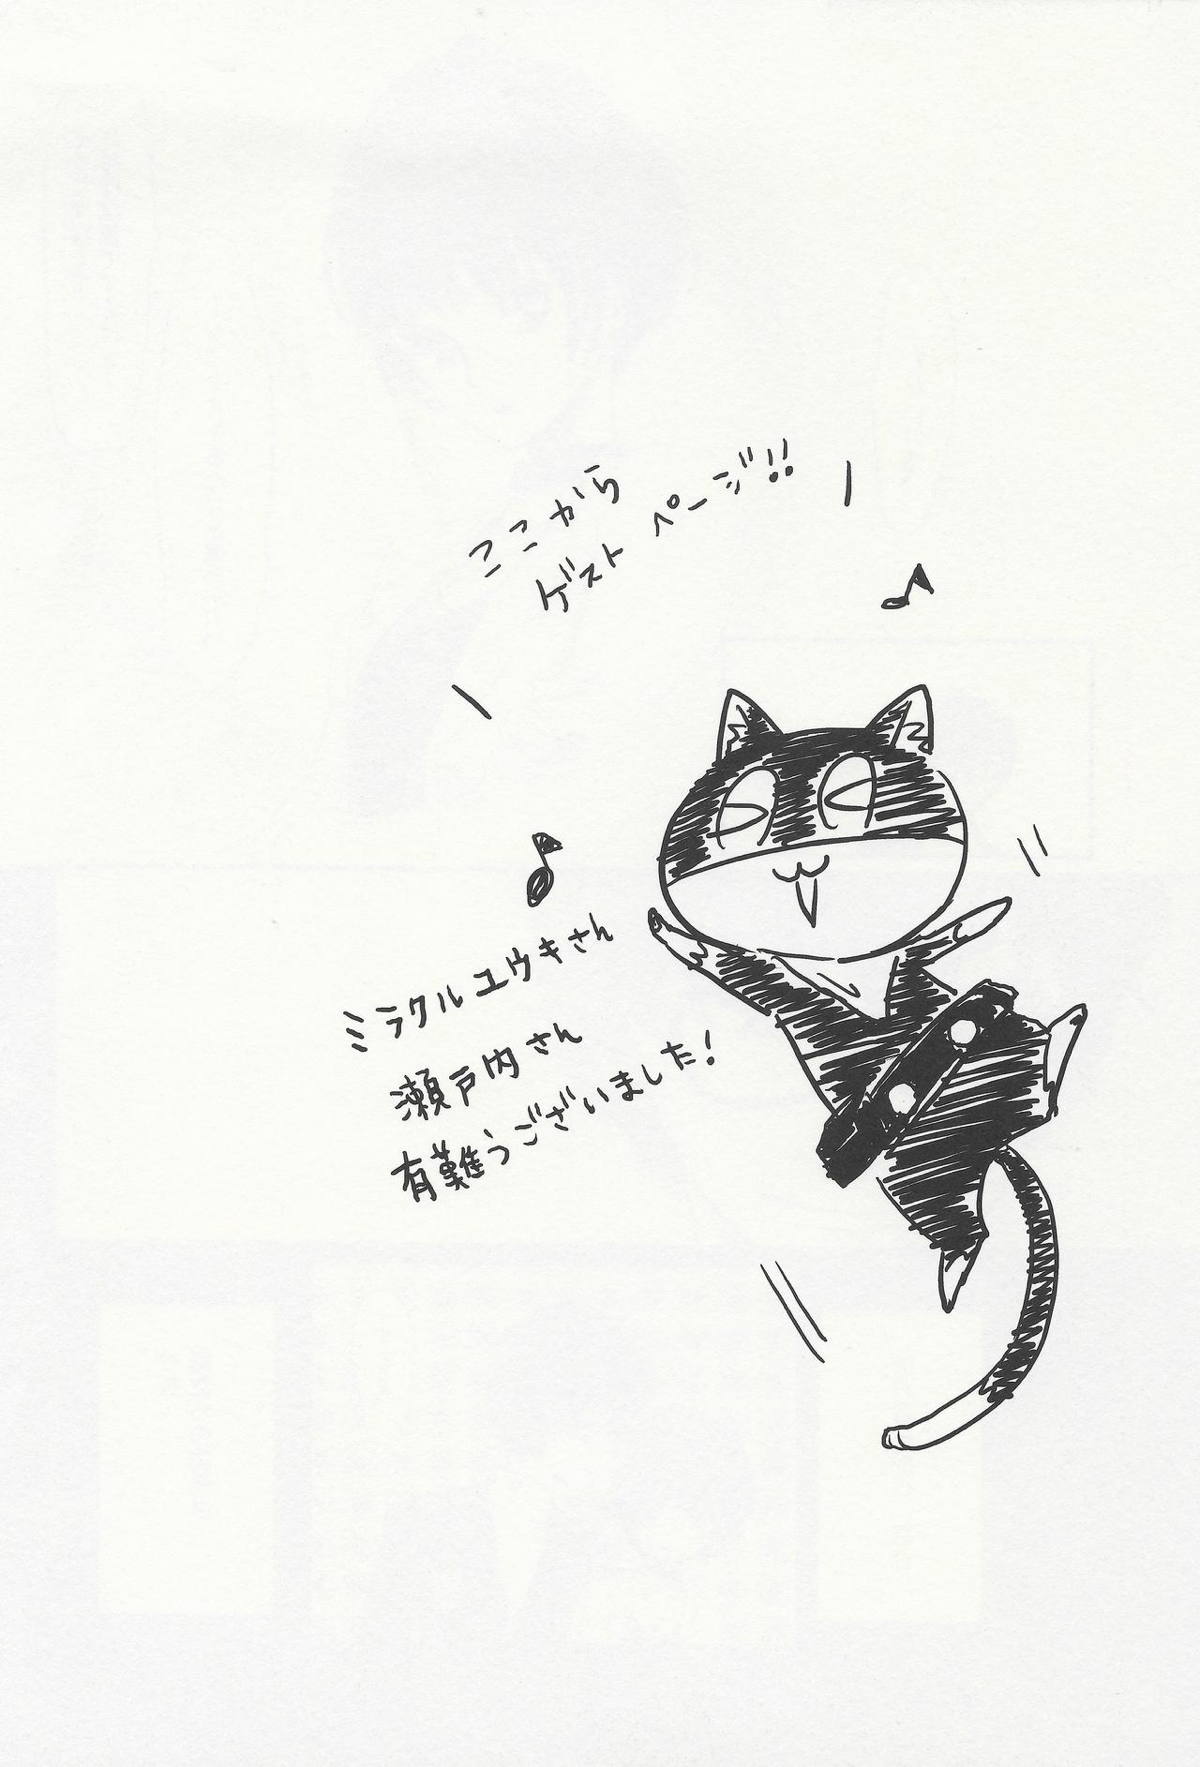 ここから
ゲスト ページ!!
ミラクルユウキさん
瀬戸内さん
有難うございました!